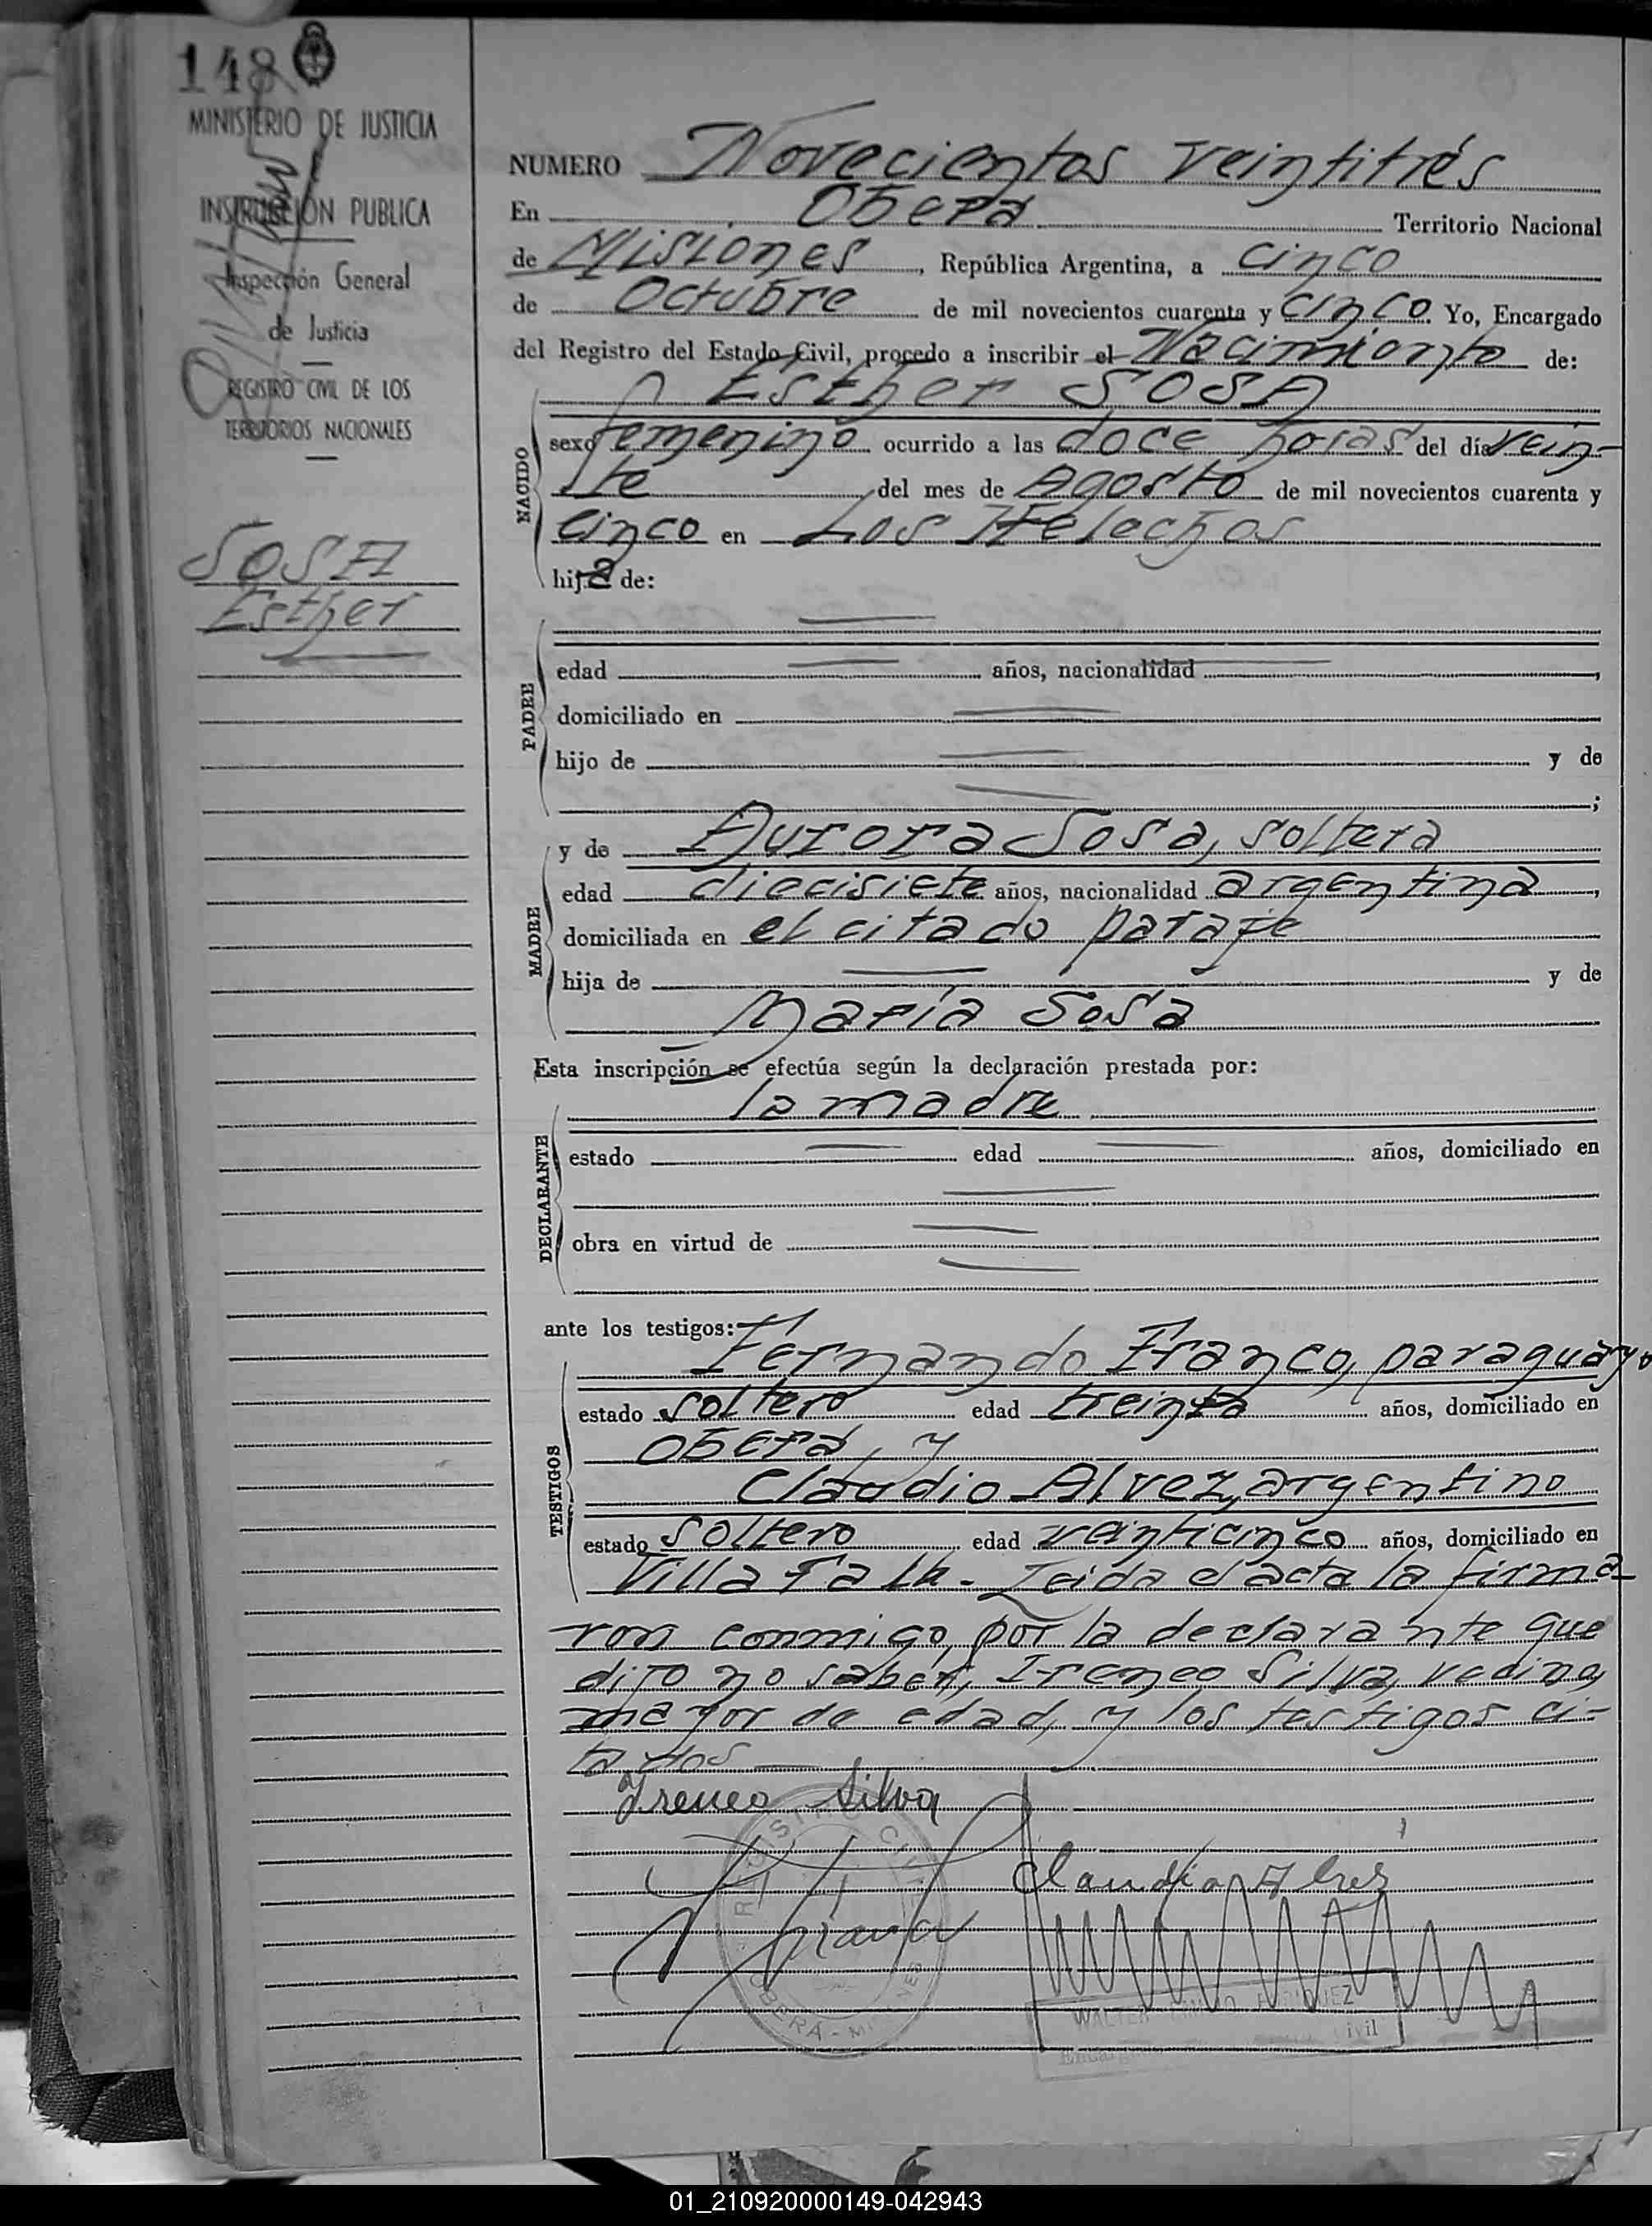 148
MINISTERIO DE JUSTICIA
INSTRUCCIÓN PUBLICA
Inspección General
de Justicia
REGISTRO CIVIL DE LOS
TERRITORIOS NACIONALES
SOSA
Esther
NUMERO Novecientos veintitrés
En Oberá Territorio Nacional
de Misiones, República Argentina, a cinco
de Octubre de mil novecientos cuarenta y cinco. Yo, Encargado
del Registro del Estado Civil, procedo a inscribir el Nacimiento de:
Esther SOSA
NACIDO
sexo femenino ocurrido a las doce horas del día vein-
te del mes de Agosto de mil novecientos cuarenta y
cinco en Los Helechos
hija de:
PADRE
edad años, nacionalidad ,
domiciliado en
hijo de y de
;
MADRE
y de Aurora Sosa, soltera
edad diecisiete años, nacionalidad argentina,
domiciliada en el citado paraje
hija de y de
María Sosa
Esta inscripción se efectúa según la declaración prestada por:
la madre
DECLARANTE
estado edad años, domiciliado en
obra en virtud de
ante los testigos:
TESTIGOS
Fernando Franco, paraguayo
estado soltero edad treinta años, domiciliado en
Oberá, y
Claudio Alvez, argentino
estado soltero edad veinticinco años, domiciliado en
Villa Falk.- Leida el acta la firma-
ron conmigo, por la declarante que
dijo no saber, Ireneo Silva, vecino,
mayor de edad, y los testigos ci-
tados
Ireneo Silva
Claudio Alvez
REGISTRO CIVIL
OBERÁ - MISIONES
WALTER
Civil
01_210920000149-042943